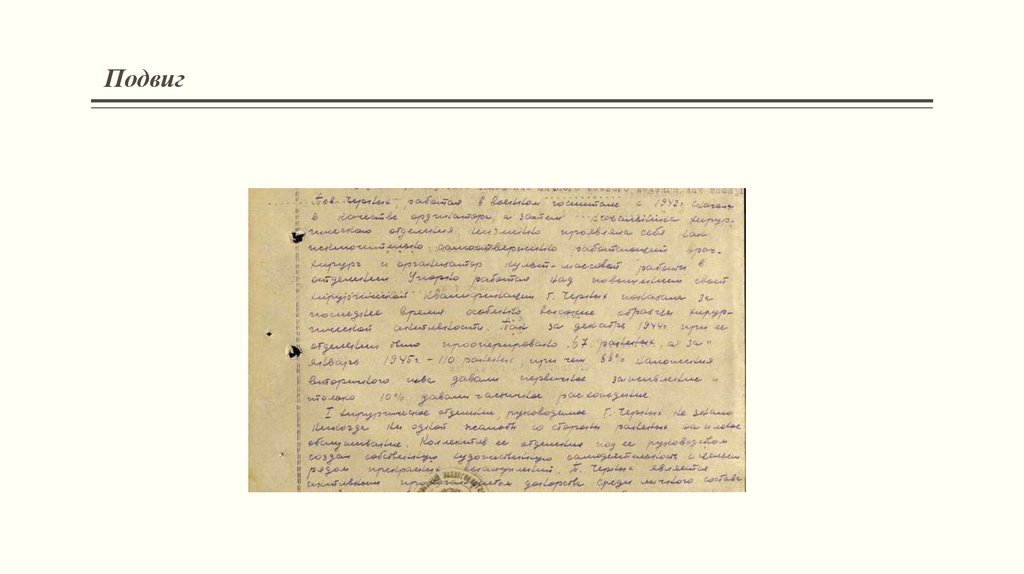 Подвиг
Тов. Черных, работая в военном госпитале с 1942г. сначала
в качестве ординатора, а затем начальника хирур-
гического отделения неизменно проявляла себя как
исключительно самоотверженно работающий врач-
хирург и организатор культ-массовой работы в
отделении. Упорно работая над повышением своей
хирургической квалификации Т. Черных показала за
последнее время особенно высокие образцы хирур-
гической активности. Так за декабрь 1944г. при ее
отделении было прооперировано 67 раненых, а за
январь 1945г. - 110 раненых, при чем 88% наложения
вторичного шва давали первичное заживление и
только 10% давали частичное расхождение.
I хирургическое отделение, руководимое Т. Черных не знало
никогда ни одной жалобы со стороны раненых на плохое
обслуживание. Коллектив ее отделения под ее руководством
создал собственную художественную самодеятельность с целым
рядом прекрасных выступлений. Т. Черных является
активным пропагандистом донорства среди личного состава